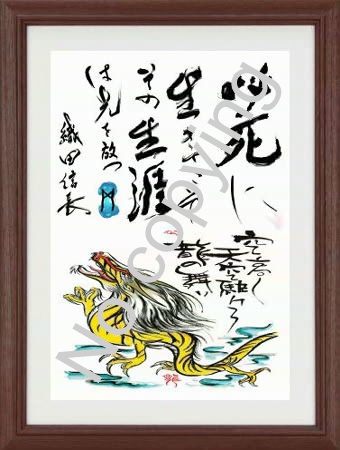 必死に
生きてこそ
その生涯
は光を放つ
織田信長
空高く
天空駆ける
龍の舞い
No copying